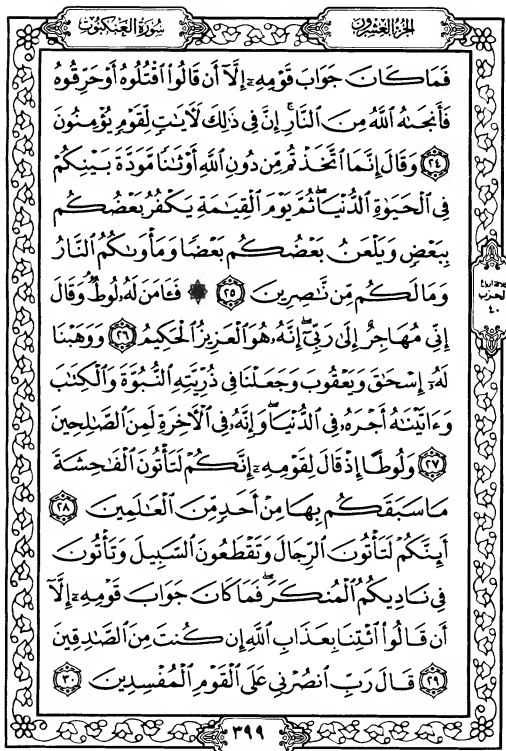 سُورَةُ العَنكَبُوتِ
الجُزءُ العِشْرُونَ
فَمَا كَانَ جَوَابَ قَوْمِهِۦٓ إِلَّآ أَن قَالُوا۟ ٱقْتُلُوهُ أَوْ حَرِّقُوهُ
فَأَنجَىٰهُ ٱللَّهُ مِنَ ٱلنَّارِ ۚ إِنَّ فِى ذَٰلِكَ لَـَٔايَٰتٍ لِّقَوْمٍ يُؤْمِنُونَ
٢٤ وَقَالَ إِنَّمَا ٱتَّخَذْتُم مِّن دُونِ ٱللَّهِ أَوْثَٰنًا مَّوَدَّةَ بَيْنِكُمْ
فِى ٱلْحَيَوٰةِ ٱلدُّنْيَا ۖ ثُمَّ يَوْمَ ٱلْقِيَٰمَةِ يَكْفُرُ بَعْضُكُم
بِبَعْضٍ وَيَلْعَنُ بَعْضُكُم بَعْضًا وَمَأْوَىٰكُمُ ٱلنَّارُ
وَمَا لَكُم مِّن نَّٰصِرِينَ ٢٥ ۞ فَـَٔامَنَ لَهُۥ لُوطٌ ۘ وَقَالَ
إِنِّى مُهَاجِرٌ إِلَىٰ رَبِّىٓ ۖ إِنَّهُۥ هُوَ ٱلْعَزِيزُ ٱلْحَكِيمُ ٢٦ وَوَهَبْنَا
لَهُۥٓ إِسْحَٰقَ وَيَعْقُوبَ وَجَعَلْنَا فِى ذُرِّيَّتِهِ ٱلنُّبُوَّةَ وَٱلْكِتَٰبَ
وَءَاتَيْنَٰهُ أَجْرَهُۥ فِى ٱلدُّنْيَا ۖ وَإِنَّهُۥ فِى ٱلْـَٔاخِرَةِ لَمِنَ ٱلصَّٰلِحِينَ
٢٧ وَلُوطًا إِذْ قَالَ لِقَوْمِهِۦٓ إِنَّكُمْ لَتَأْتُونَ ٱلْفَٰحِشَةَ
مَا سَبَقَكُم بِهَا مِنْ أَحَدٍ مِّنَ ٱلْعَٰلَمِينَ ٢٨
أَئِنَّكُمْ لَتَأْتُونَ ٱلرِّجَالَ وَتَقْطَعُونَ ٱلسَّبِيلَ وَتَأْتُونَ
فِى نَادِيكُمُ ٱلْمُنكَرَ ۖ فَمَا كَانَ جَوَابَ قَوْمِهِۦٓ إِلَّآ
أَن قَالُوا۟ ٱئْتِنَا بِعَذَابِ ٱللَّهِ إِن كُنتَ مِنَ ٱلصَّٰدِقِينَ
٢٩ قَالَ رَبِّ ٱنصُرْنِى عَلَى ٱلْقَوْمِ ٱلْمُفْسِدِينَ ٣٠
الحزب
٤٠
٣٩٩